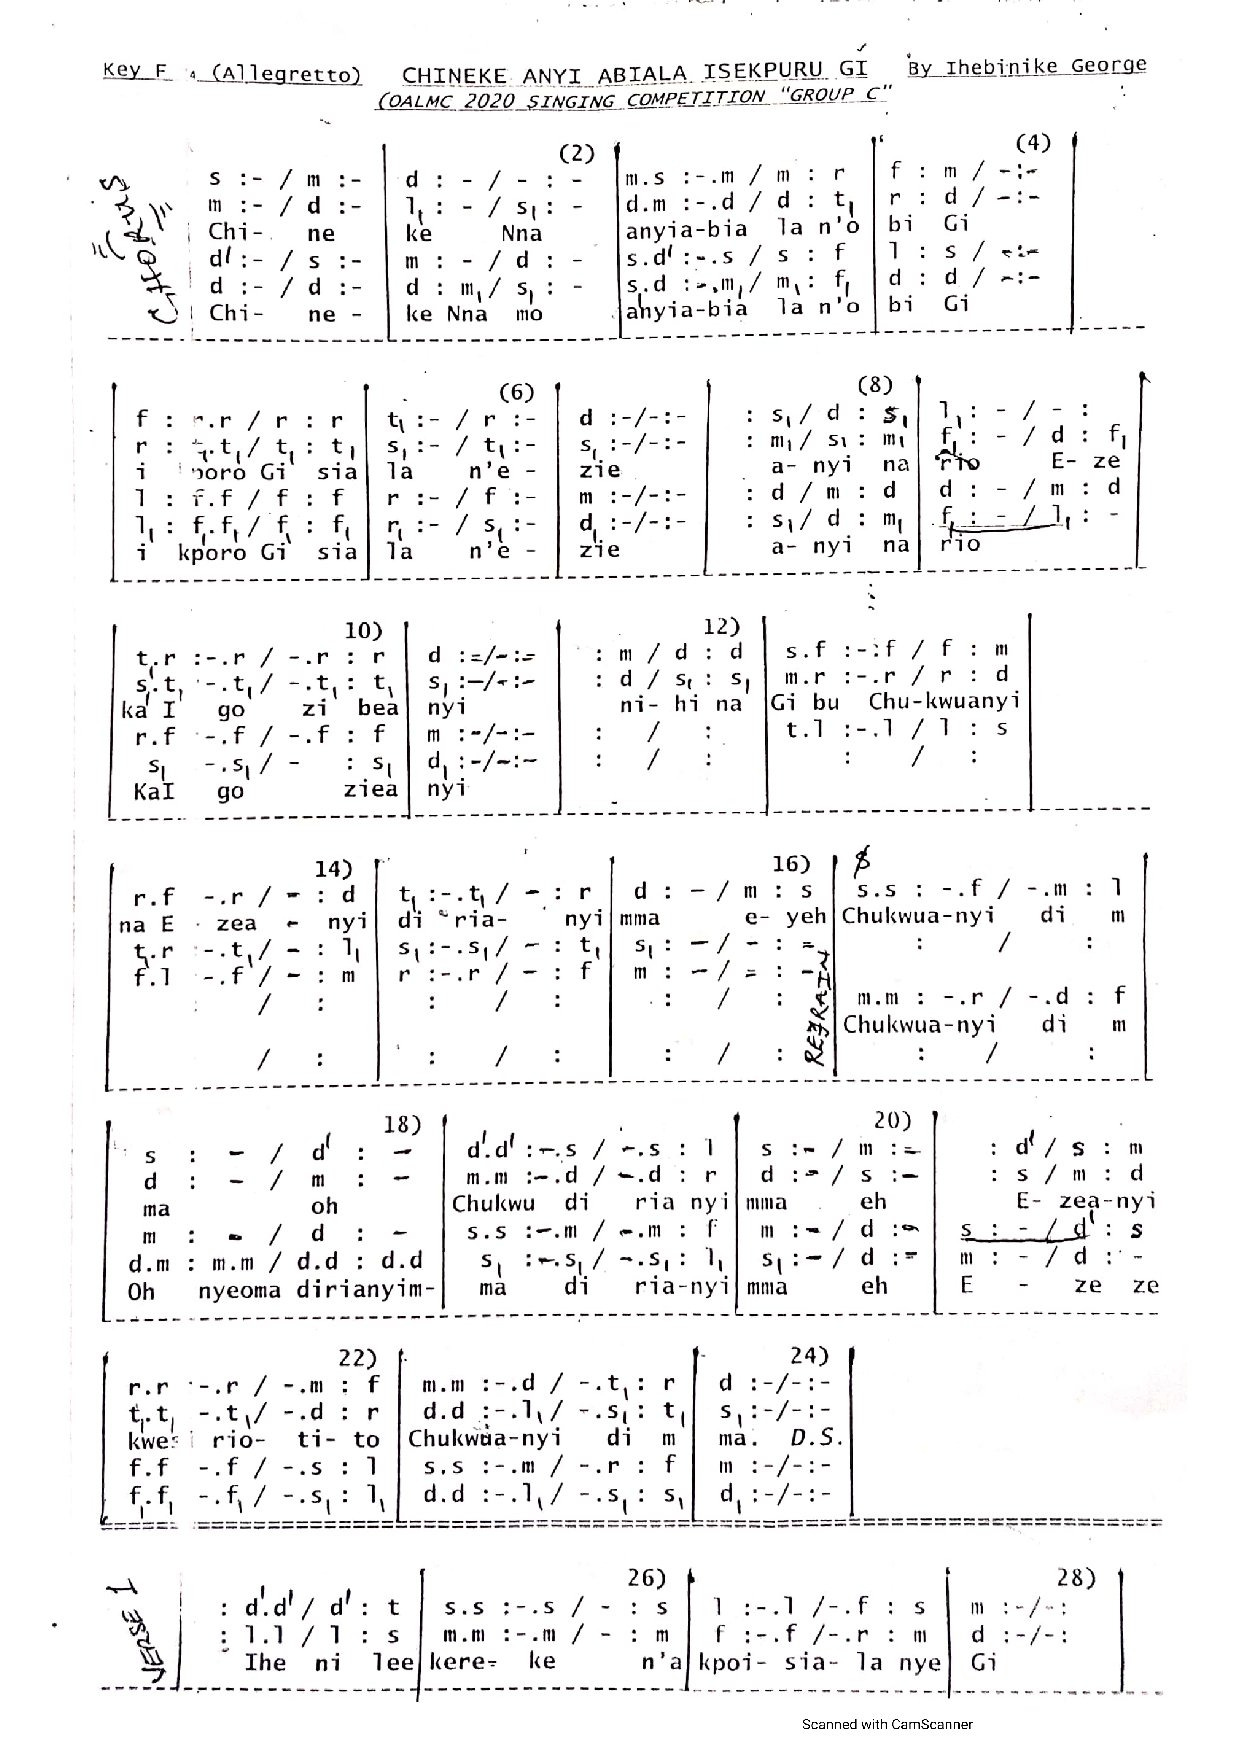 Key F (Allegretto) CHINEKE ANYI ABIALA ISEKPURU GI By Ihebinike George
(OALMC 2020 SINGING COMPETITION "GROUP C"
CHORUS
(2) (4)
s :- / m :- | d : - / - : - | m.s :-.m / m : r | f : m / -:-
m :- / d :- | l₁ : - / s₁ : - | d.m :-.d / d : t₁ | r : d / -:-
Chi- ne | ke Nna | anyia-bia la n'o | bi Gi
d' :- / s :- | m : - / d : - | s.d' :-.s / s : f | l : s / -:-
d :- / d :- | d : m₁ / s₁ : - | s.d :-.m₁ / m₁ : f₁ | d : d / -:-
Chi- ne - | ke Nna mo | anyia-bia la n'o | bi Gi
(6) (8)
f : -.r / r : r | t₁ :- / r :- | d :-/-:- | : s₁ / d : s₁ | l₁ : - / - :
r : t₁.t₁ / t₁ : t₁ | s₁ :- / t₁ :- | s₁ :-/-:- | : m₁ / s₁ : m₁ | f₁ : - / d : f₁
i poro Gi sia | la n'e - | zie | a- nyi na | rio E- ze
l : f.f / f : f | r :- / f :- | m :-/-:- | : d / m : d | d : - / m : d
l₁ : f₁.f₁ / f₁ : f₁ | r₁ :- / s₁ :- | d₁ :-/-:- | : s₁ / d : m₁ | f₁ : - / l₁ : -
i kporo Gi sia | la n'e - | zie | a- nyi na | rio
10) 12)
t₁.r :-.r / -.r : r | d :=/-:= | : m / d : d | s.f :-:f / f : m
s₁.t₁ -.t₁ / -.t₁ : t₁ | s₁ :-/-:- | : d / s₁ : s₁ | m.r :-.r / r : d
ka I go zi bea | nyi | ni- hi na | Gi bu Chu-kwuanyi
r.f -.f / -.f : f | m :-/-:- | : / : | t.l :-.l / l : s
s₁ -.s₁ / - : s₁ | d₁ :-/-:- | : / : | : / :
KaI go ziea | nyi
14) 16)
r.f -.r / - : d | t₁ :-.t₁ / - : r | d : - / m : s | s.s : -.f / -.m : l
na E zea - nyi | di ria- nyi | mma e- yeh | Chukwua-nyi di m
t₁.r -.t₁ / - : l₁ | s₁ :-.s₁ / - : t₁ | s₁ : - / - : = | : / :
f.l -.f / - : m | r :-.r / - : f | m : - / = : -
/ : | : / : | : / : | m.m : -.r / -.d : f
REFRAIN
Chukwua-nyi di m
/ : | : / : | : / : | : / :
18) 20)
s : - / d' : - | d'.d' :-.s / -.s : l | s :- / m := | : d' / s : m
d : - / m : - | m.m :-.d / -.d : r | d :- / s :- | : s / m : d
ma oh | Chukwu di ria nyi | mma eh | E- zea-nyi
m : - / d : - | s.s :-.m / -.m : f | m :- / d :- | s : - / d' : s
d.m : m.m / d.d : d.d | s₁ :-.s₁ / -.s₁ : l₁ | s₁ :- / d := | m : - / d : -
Oh nyeoma dirianyim- | ma di ria-nyi | mma eh | E - ze ze
22) 24)
r.r -.r / -.m : f | m.m :-.d / -.t₁ : r | d :-/-:-
t₁.t₁ -.t₁ / -.d : r | d.d :-.l₁ / -.s₁ : t₁ | s₁ :-/-:-
kwe rio- ti- to | Chukwua-nyi di m | ma. D.S.
f.f -.f / -.s : l | s.s :-.m / -.r : f | m :-/-:-
f₁.f₁ -.f₁ / -.s₁ : l₁ | d.d :-.l₁ / -.s₁ : s₁ | d₁ :-/-:-
VERSE 1
26) 28)
: d'.d' / d' : t | s.s :-.s / - : s | l :-.l /-.f : s | m :-/-:
: l.l / l : s | m.m :-.m / - : m | f :-.f /-.r : m | d :-/-:
Ihe ni lee | kere- ke n'a | kpoi- sia- la nye | Gi
Scanned with CamScanner